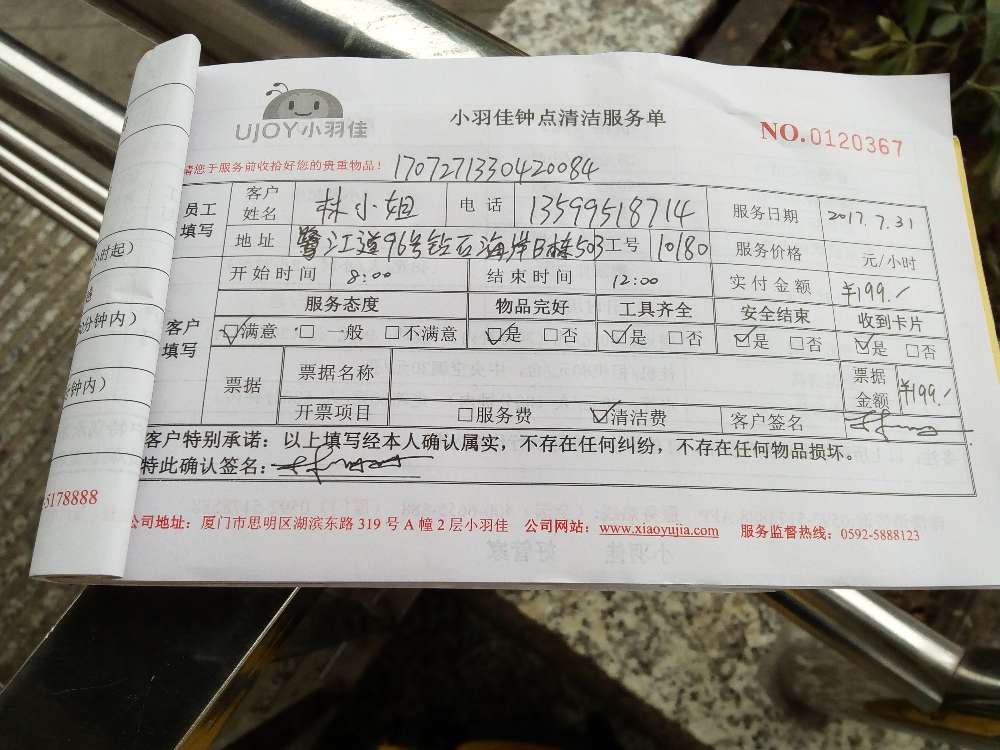 UJOY小羽佳
小羽佳钟点清洁服务单
NO.0120367
请您于服务前收拾好您的贵重物品！ 1707271330420084
员工填写 客户姓名 林小姐 电话 13599518714 服务日期 2017.7.31
地址 鹭江道96号钻石海岸B栋503 工号 10180 服务价格 元/小时
开始时间 8:00 结束时间 12:00 实付金额 ¥199./
客户填写 服务态度 物品完好 工具齐全 安全结束 收到卡片
☑满意 □一般 □不满意 ☑是 □否 ☑是 □否 ☑是 □否 ☑是 □否
票据 票据名称 票据金额 ¥199./
开票项目 □服务费 ☑清洁费 客户签名
客户特别承诺：以上填写经本人确认属实，不存在任何纠纷，不存在任何物品损坏。
特此确认签名：
公司地址：厦门市思明区湖滨东路 319 号 A 幢 2 层小羽佳 公司网站：www.xiaoyujia.com 服务监督热线：0592-5888123
小时起）
分钟内）
钟内）
5178888